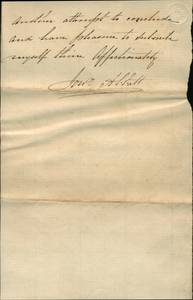 another attempt to conclude
and have pleasure to subscribe
myself thine Affectionately
Jonⁿ Abbott